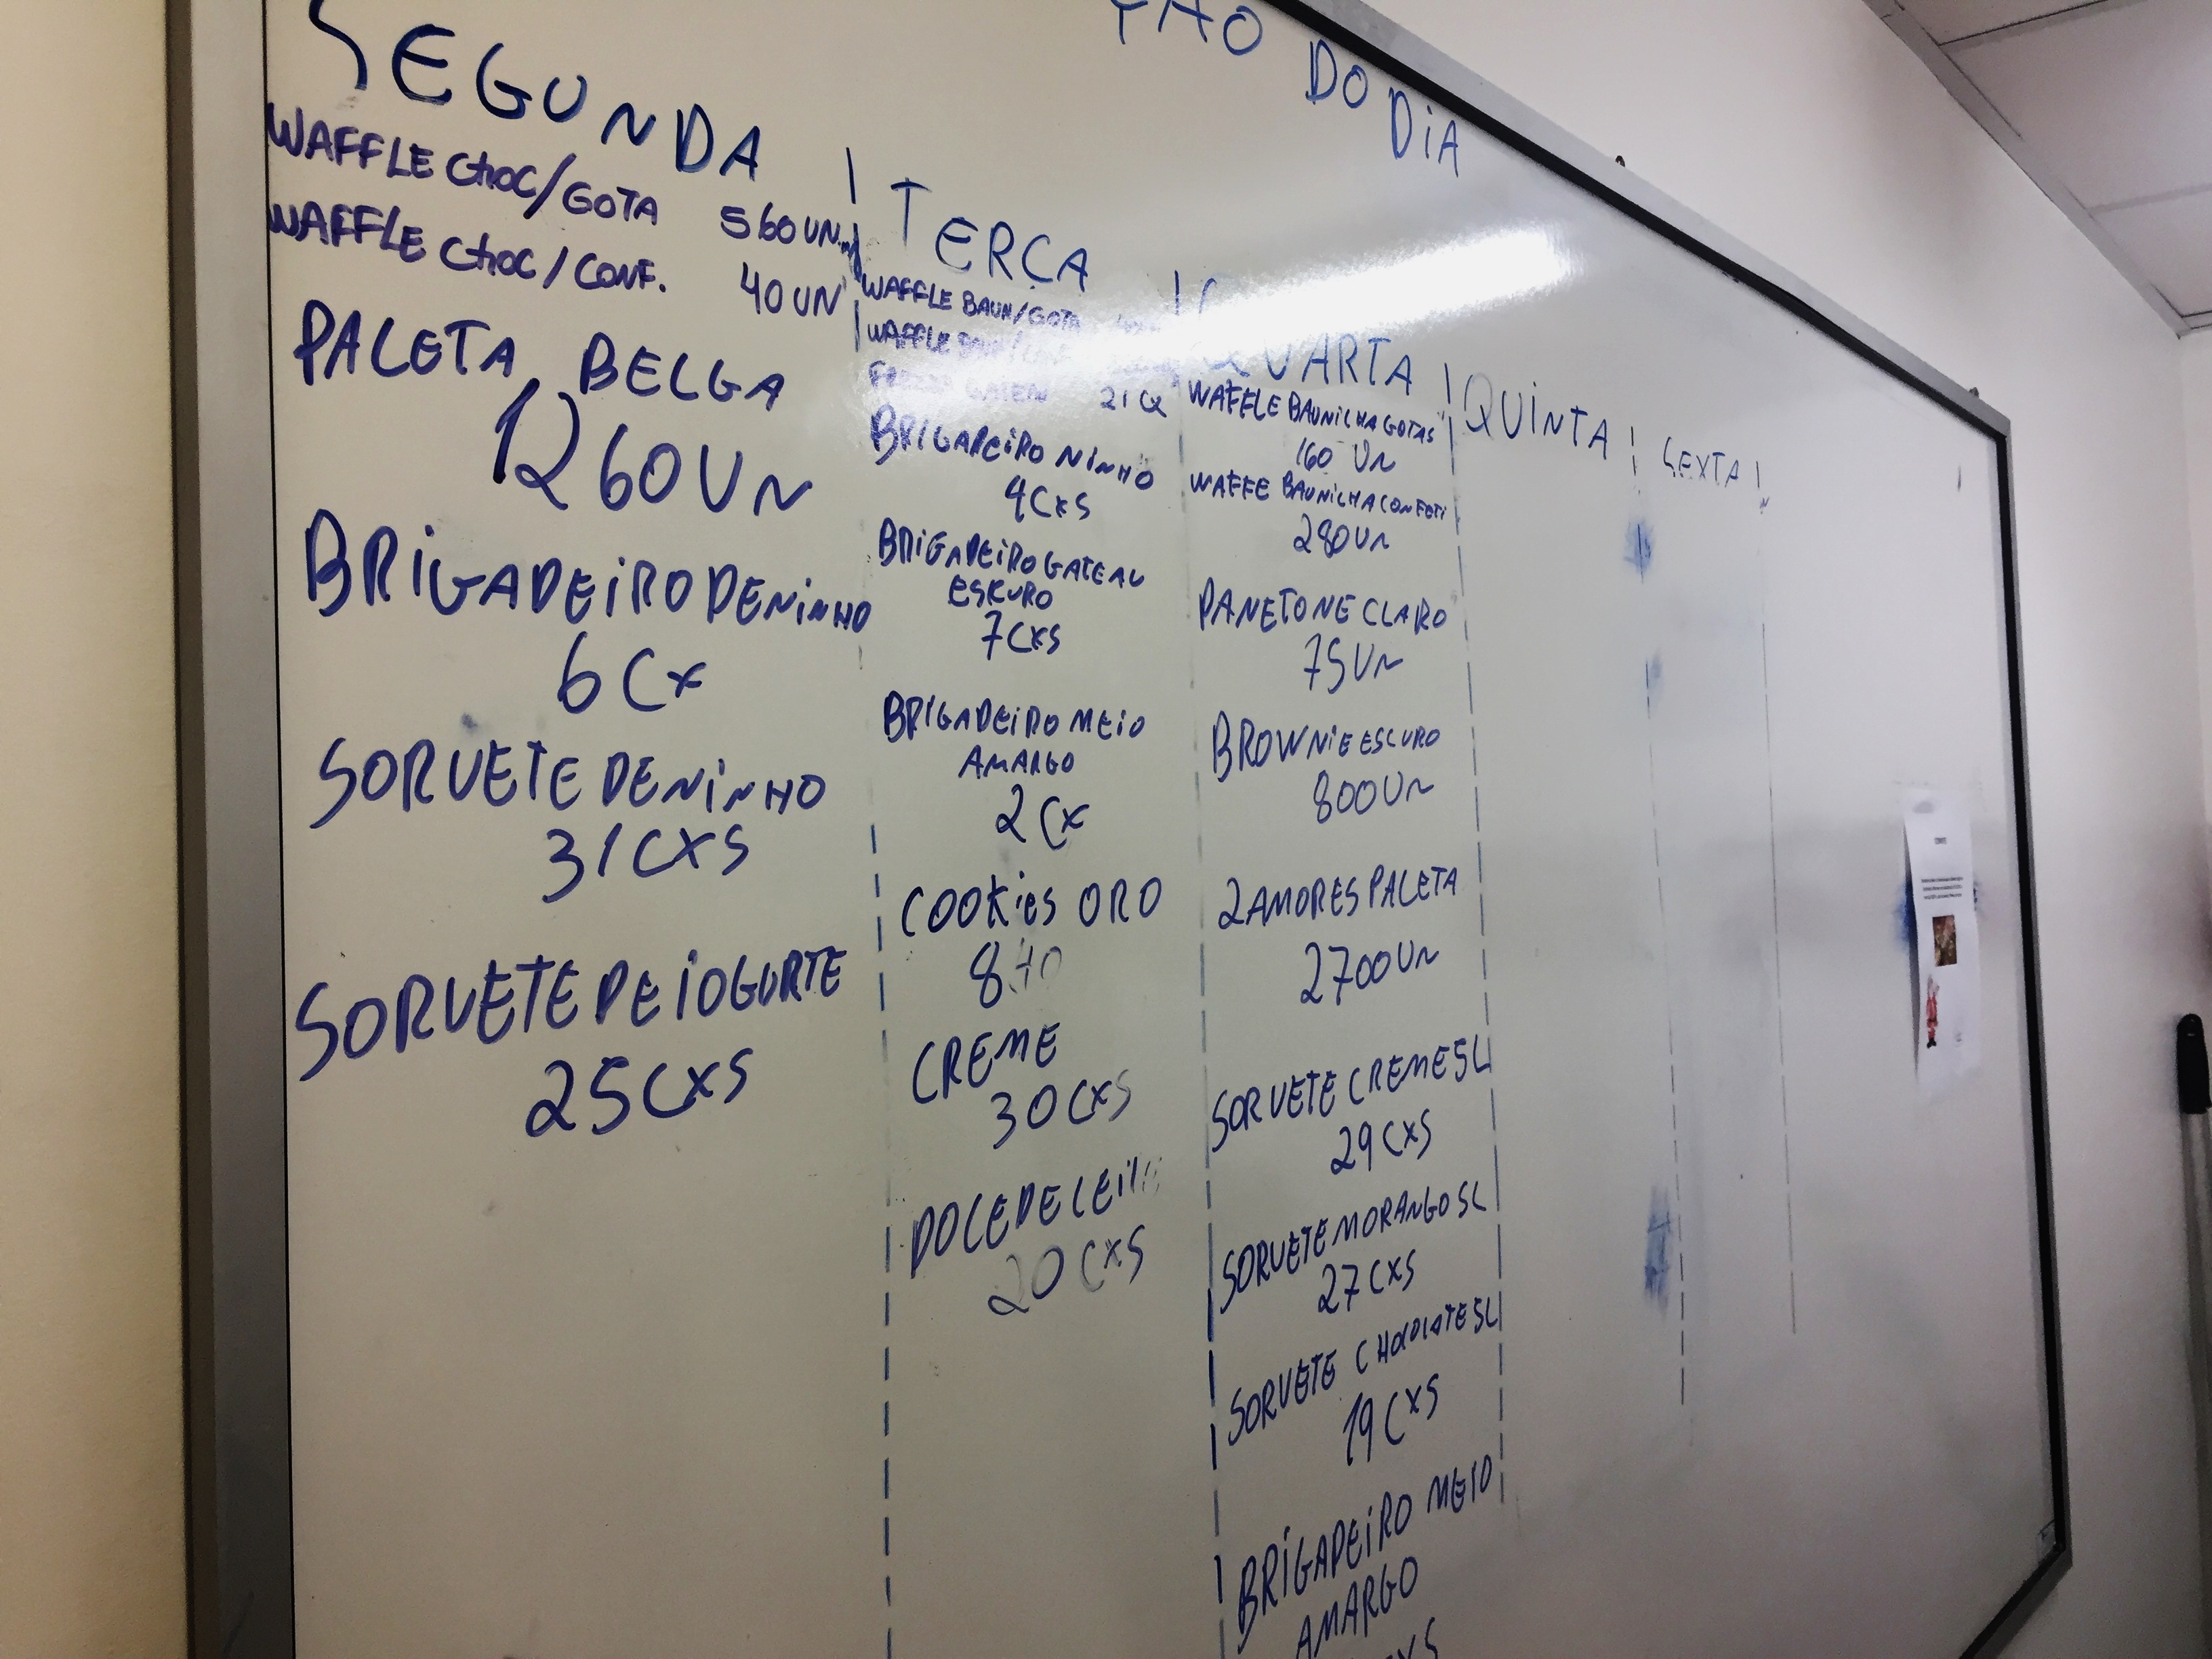 DO DIA
SEGUNDA
WAFFLE CHOC/GOTA 560UN
WAFFLE CHOC/CONF. 40UN
PALETA BELGA
1260UN
BRIGADEIRO DE NINHO
6 CX
SORVETE DE NINHO
31CXS
SORVETE DE IOGURTE
25CXS
TERÇA
WAFFLE BAUN/GOTA
WAFFLE
21CX
BRIGADEIRO NINHO
4CXS
BRIGADEIRO GATEAU
ESKURO
7CXS
BRIGADEIRO MEIO
AMARGO
2 CX
COOKIES ORO
840
CREME
30CXS
DOCE DE LEITE
20CXS
QUARTA
WAFFLE BAUNILHA GOTAS
160 UN
WAFFE BAUNILHA CONFETI
280UN
PANETONE CLARO
75UN
BROWNIE ESCURO
800UN
2 AMORES PALETA
2700UN
SORVETE CREME 5L
29CXS
SORVETE MORANGO 5L
27CXS
SORVETE CHOCOLATE 5L
19CXS
BRIGADEIRO MEIO
AMARGO
QUINTA
SEXTA